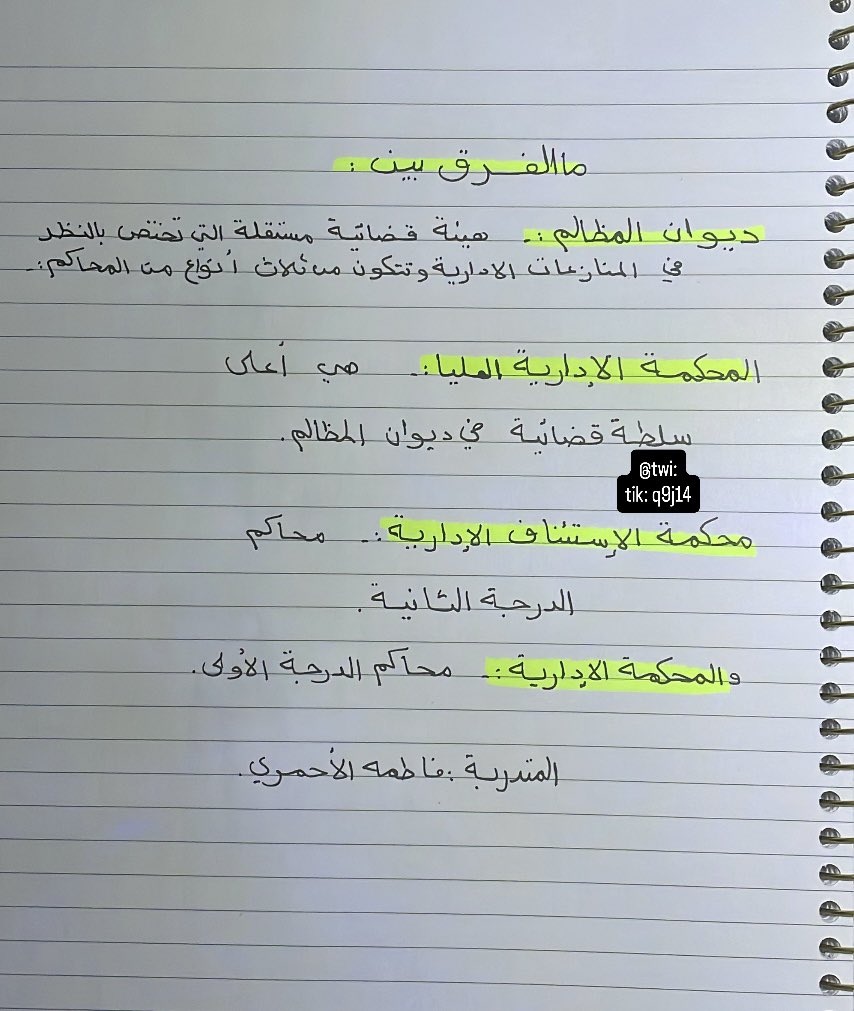 ما الفرق بين :
ديوان المظالم :- هيئة قضائية مستقلة التي تختص بالنظر
في المنازعات الادارية وتتكون من ثلاث أنواع من المحاكم :-
المحكمة الإدارية العليا :- هي أعلى
سلطة قضائية في ديوان المظالم .
@twi:
tik: q9j14
محكمة الإستئناف الإدارية :- محاكم
الدرجة الثانية .
والمحكمة الإدارية :- محاكم الدرجة الأولى .
المتدربة : فاطمه الأحمري .